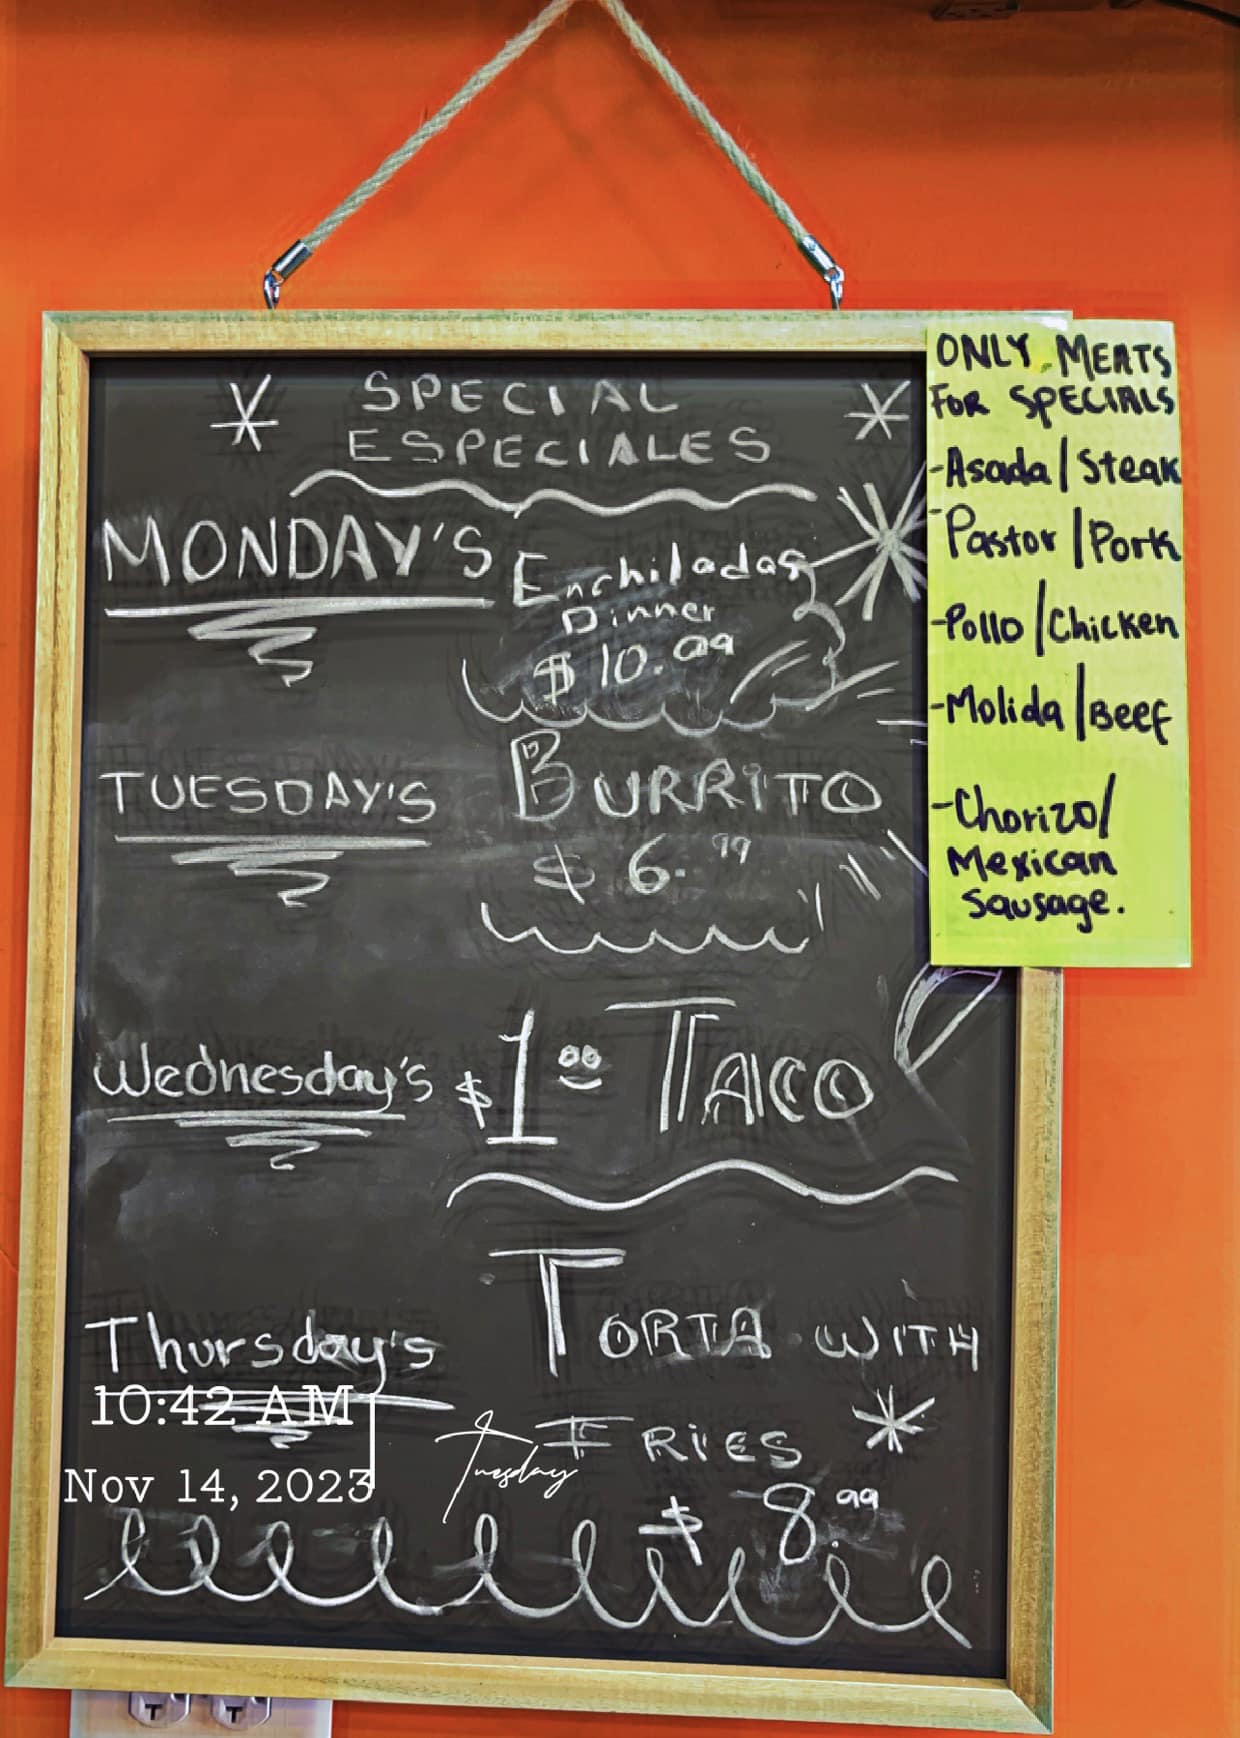 SPECIAL
ESPECIALES
MONDAY'S
Enchiladas
Dinner
$10.99
TUESDAY'S
BURRITO
$6.99
Wednesday's
$1.00 TACO
Thursday's
TORTA WITH
FRIES
$8.99
ONLY MEATS
FOR SPECIALS
-Asada/Steak
-Pastor/Pork
-Pollo/Chicken
-Molida/Beef
-Chorizo/
Mexican
Sausage.
10:42 AM
Nov 14, 2023
Tuesday